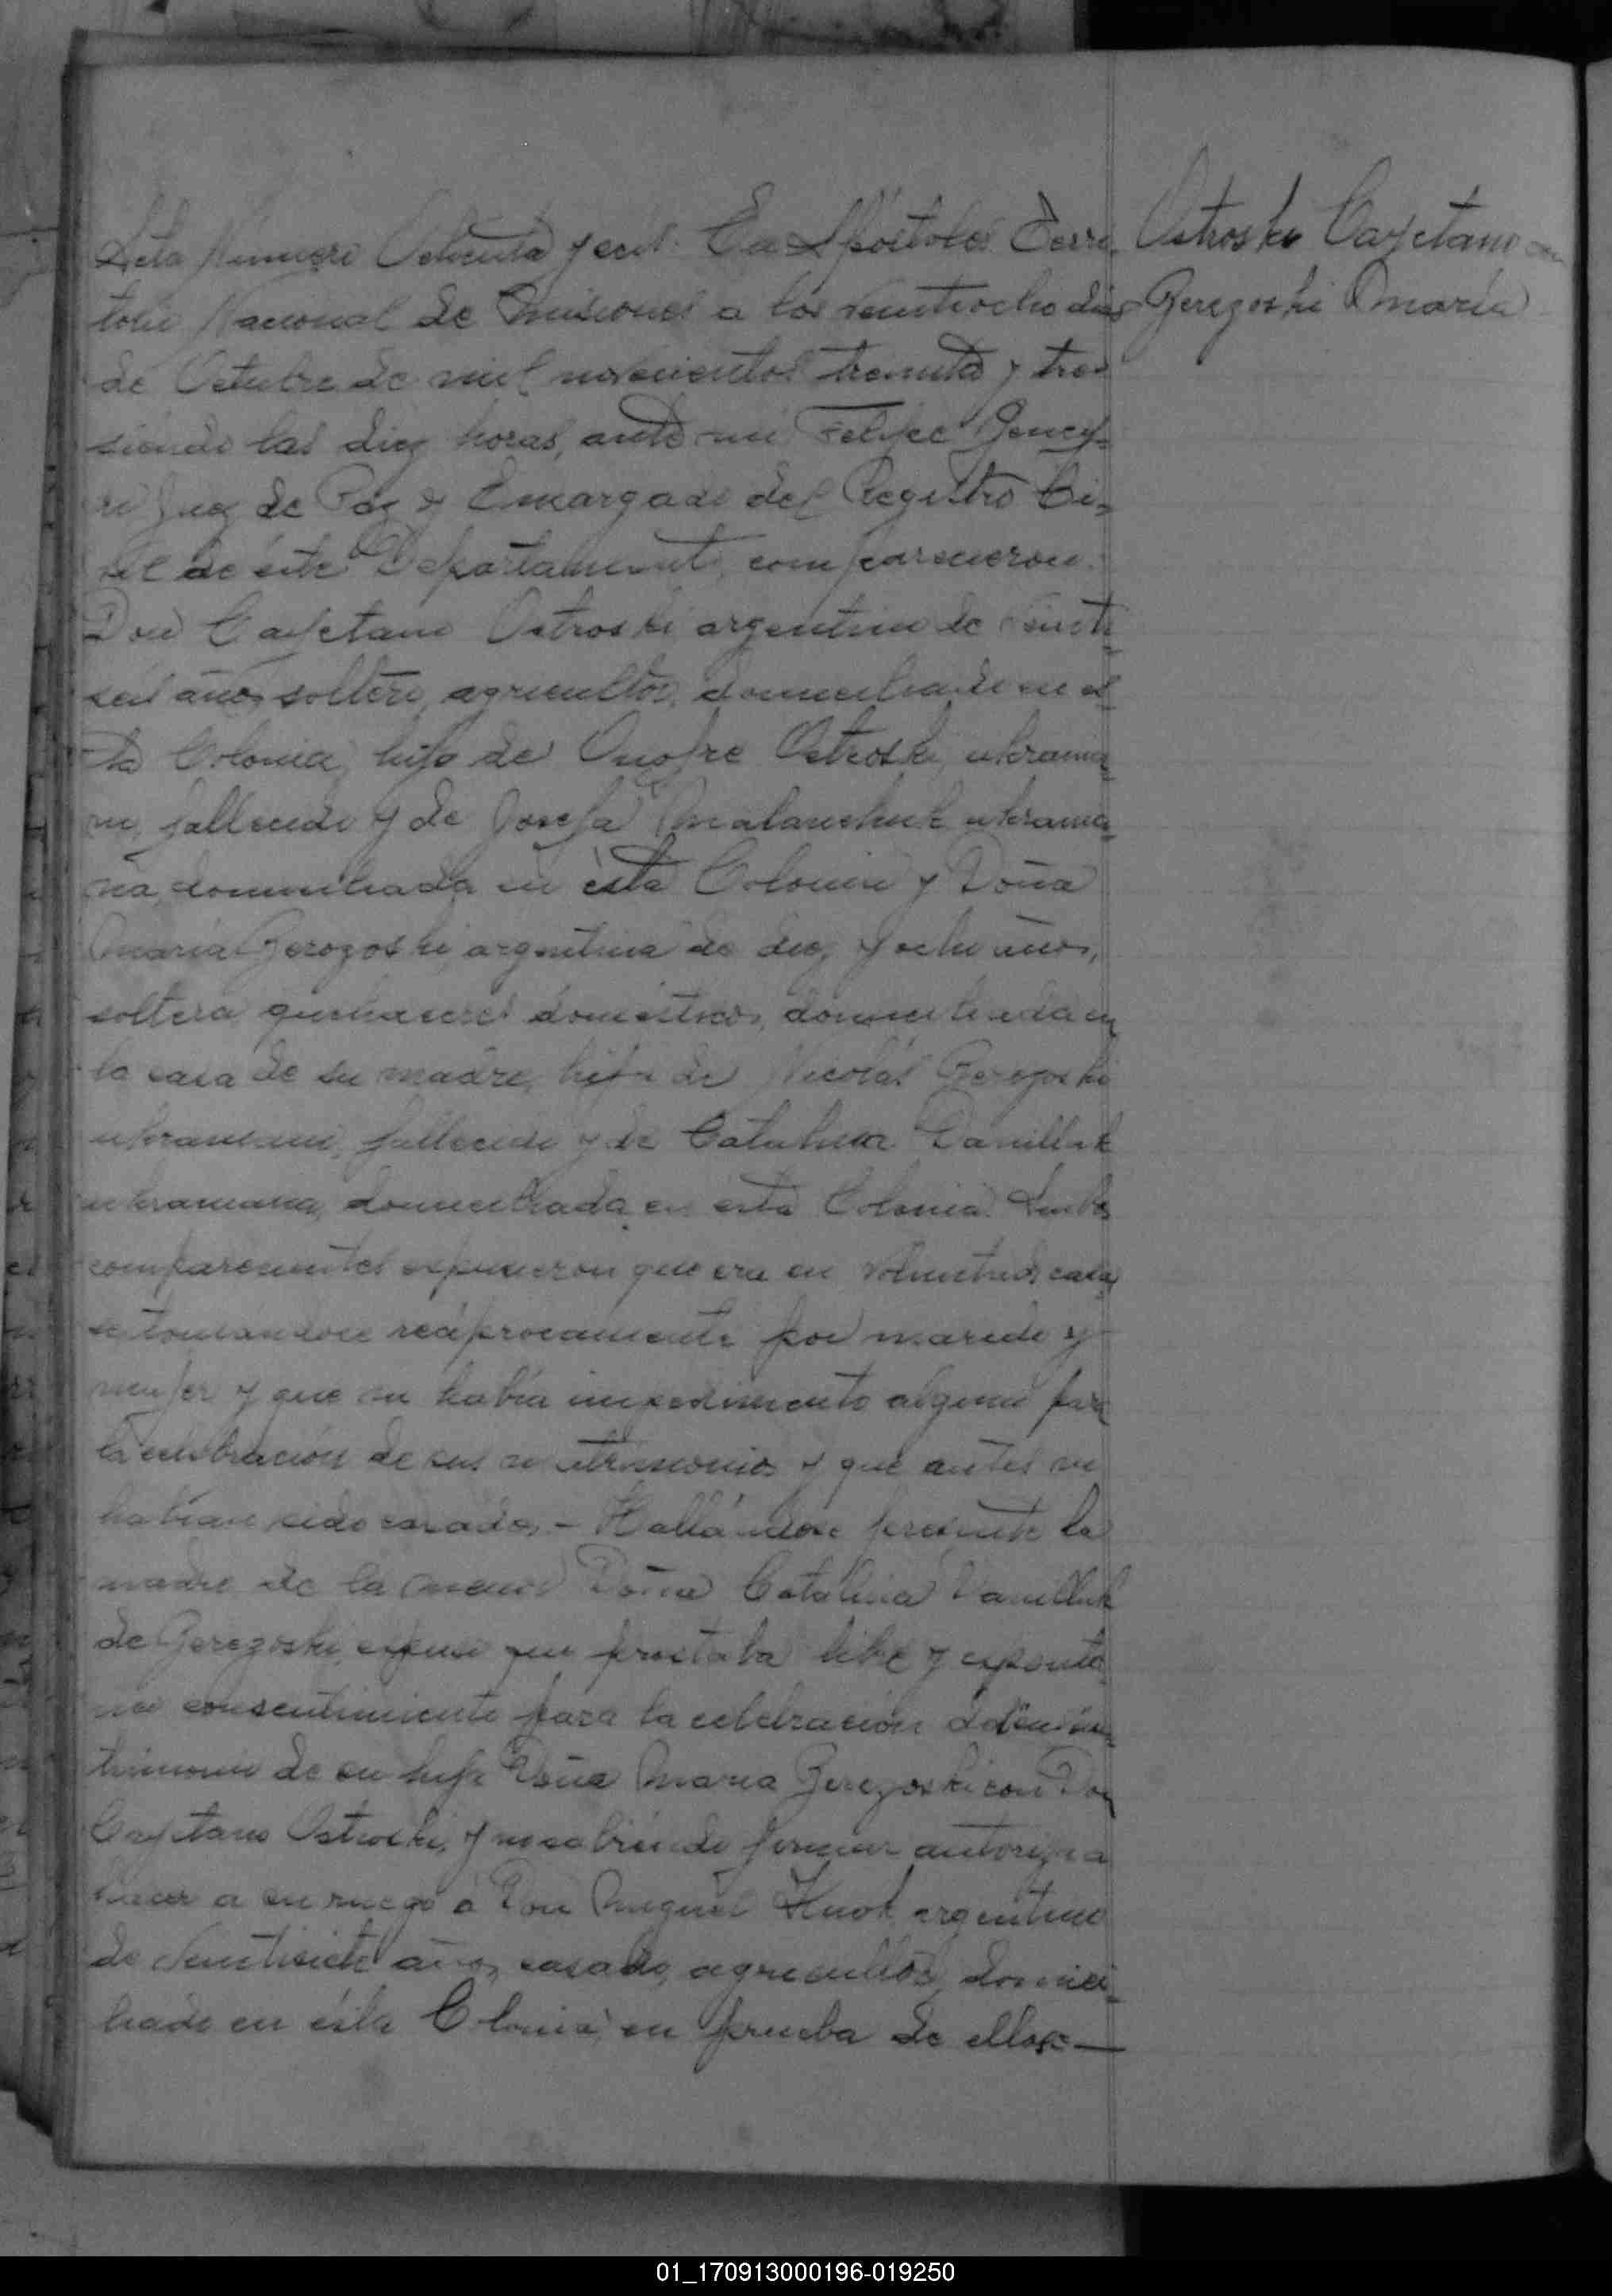 Acta Número Ochenta y seis. En Apóstoles Terri-
torio Nacional de Misiones a los veintiocho días
de Octubre de mil novecientos treinta y tres
siendo las diez horas, ante mi Felipe
Juez de Paz y Encargado del Registro Ci-
vil de éste Departamento, comparecieron:
Don Cayetano Ostroski argentino de veinti
seis años, soltero, agricultor, domiciliado en es-
ta Colonia, hijo de Onofre Ostroski, ukrania-
no, fallecido y de Josefa Malanchuk ukrania-
na, domiciliada en ésta Colonia y Doña
María Gerezoski, argentina de diez y ocho años,
soltera, quehaceres domésticos, domiciliada en
la casa de su madre, hija de Nicolás Gerezoski
ukraniano, fallecido y de Catalina Danilluk
ukraniana, domiciliada en esta Colonia. Ambos
comparecientes expusieron que era su voluntad casar
se tomandose recíprocamente por marido y
mujer y que no había impedimento alguno para
la celebración de sus matrimonio y que antes no
habían sido casados.- Hallándose presente la
madre de la menor Doña Catalina Danilluk
de Gerezoski, expuso que prestaba libre y espontá
neo consentimiento para la celebración del ma-
trimonio de su hija Doña María Gerezoski con Don
Cayetano Ostroski, y no sabiendo firmar autoriza a
hacer a su ruego a Don Miguel argentino
de veintisiete años, casado, agricultor, domici-
liado en ésta Colonia, en prueba de ello se—
Ostroski Cayetano con
Gerezoski María
01_170913000196-019250